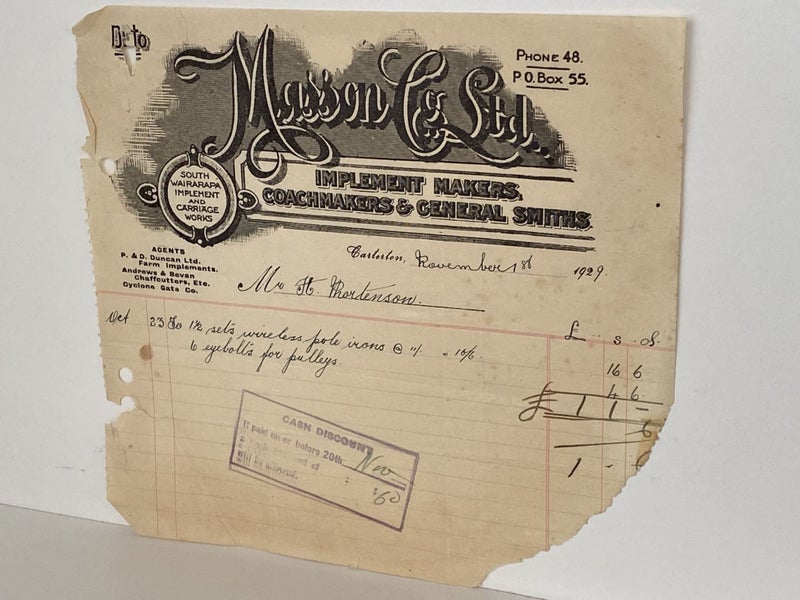 Dr. to
Masson Co. Ltd.
PHONE 48.
P O. BOX 55.
SOUTH
WAIRARAPA
IMPLEMENT
AND
CARRIAGE
WORKS
IMPLEMENT MAKERS,
COACHMAKERS & GENERAL SMITHS.
AGENTS
P. & D. Duncan Ltd.
Farm Implements.
Andrews & Bevan
Chaffcutters, Etc.
Cyclone Gate Co.
Carterton, November 1st 1929.
Mr H. Mortenson.
£ s d.
Oct 23 To 1½ sets wireless pole irons @ 11/. = 16/6.
16 6
6 eyebolts for pulleys.
4 6
£ 1 1 -
6
1 -
CASH DISCOUNT
If paid on or before 20th Nov
a of
will be allowed.